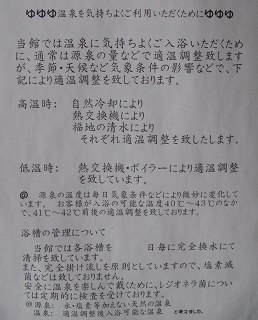 ♨♨♨温泉を気持ちよくご利用いただくために♨♨♨
当館では温泉に気持ちよくご入浴いただくため
に、通常は源泉の量などで適温調整を致します
が、季節・天候など気象条件の影響などで、下
記により適温調整を致しております。
高温時: 自然冷却により
熱交換機により
福地の清水により
それぞれ適温調整を致したします。
低温時: 熱交換機・ボイラーにより適温調整
を致しています。
◎ 源泉の温度は毎日気象条件などにより微妙に変化して
います。 お客様が入浴の可能な温度40℃~43℃のなか
で、41℃~42℃前後の適温調整を致しております。
浴槽の管理について
当館では各浴槽を 日毎に完全換水にて
清掃を致しています。
また、完全掛け流しを原則としていますので、塩素滅
菌などは致しておりません。
安全に温泉を楽しんで戴くために、レジオネラ菌につい
ては定期的に検査を受けております。
◎源泉: 水・塩素等加えない天然の温泉
温泉: 適温調整後入浴可能な温泉